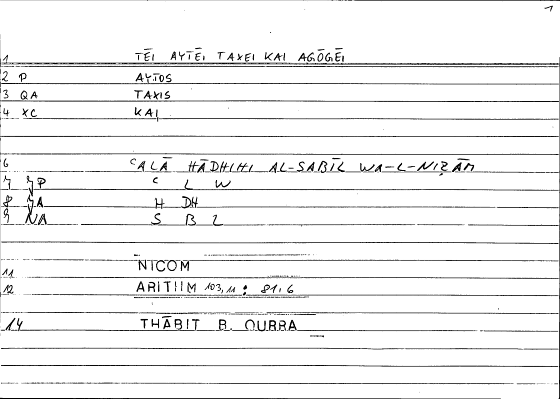 1
1 TĒI AYTĒI TAXEI KAI AGŌGĒI
2 P AYTOS
3 QA TAXIS
4 XC KAI
6 ʿALĀ HĀDHIHI AL-SABĪL WA-L-NIẒĀM
7 P ʿ L W
8 A H DH
9 NA S B L
11 NICOM
12 ARITIIM 103,11 : 81,6
14 THĀBIT B. QURRA